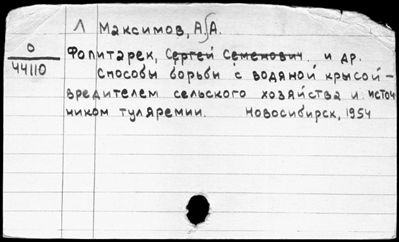 Л Максимов, А.А.
О
44110
Фолитарек, Сергей Семенович и др.
Способы борьбы с водяной крысой –
вредителем сельского хозяйства и источ
ником туляремии. Новосибирск, 1954